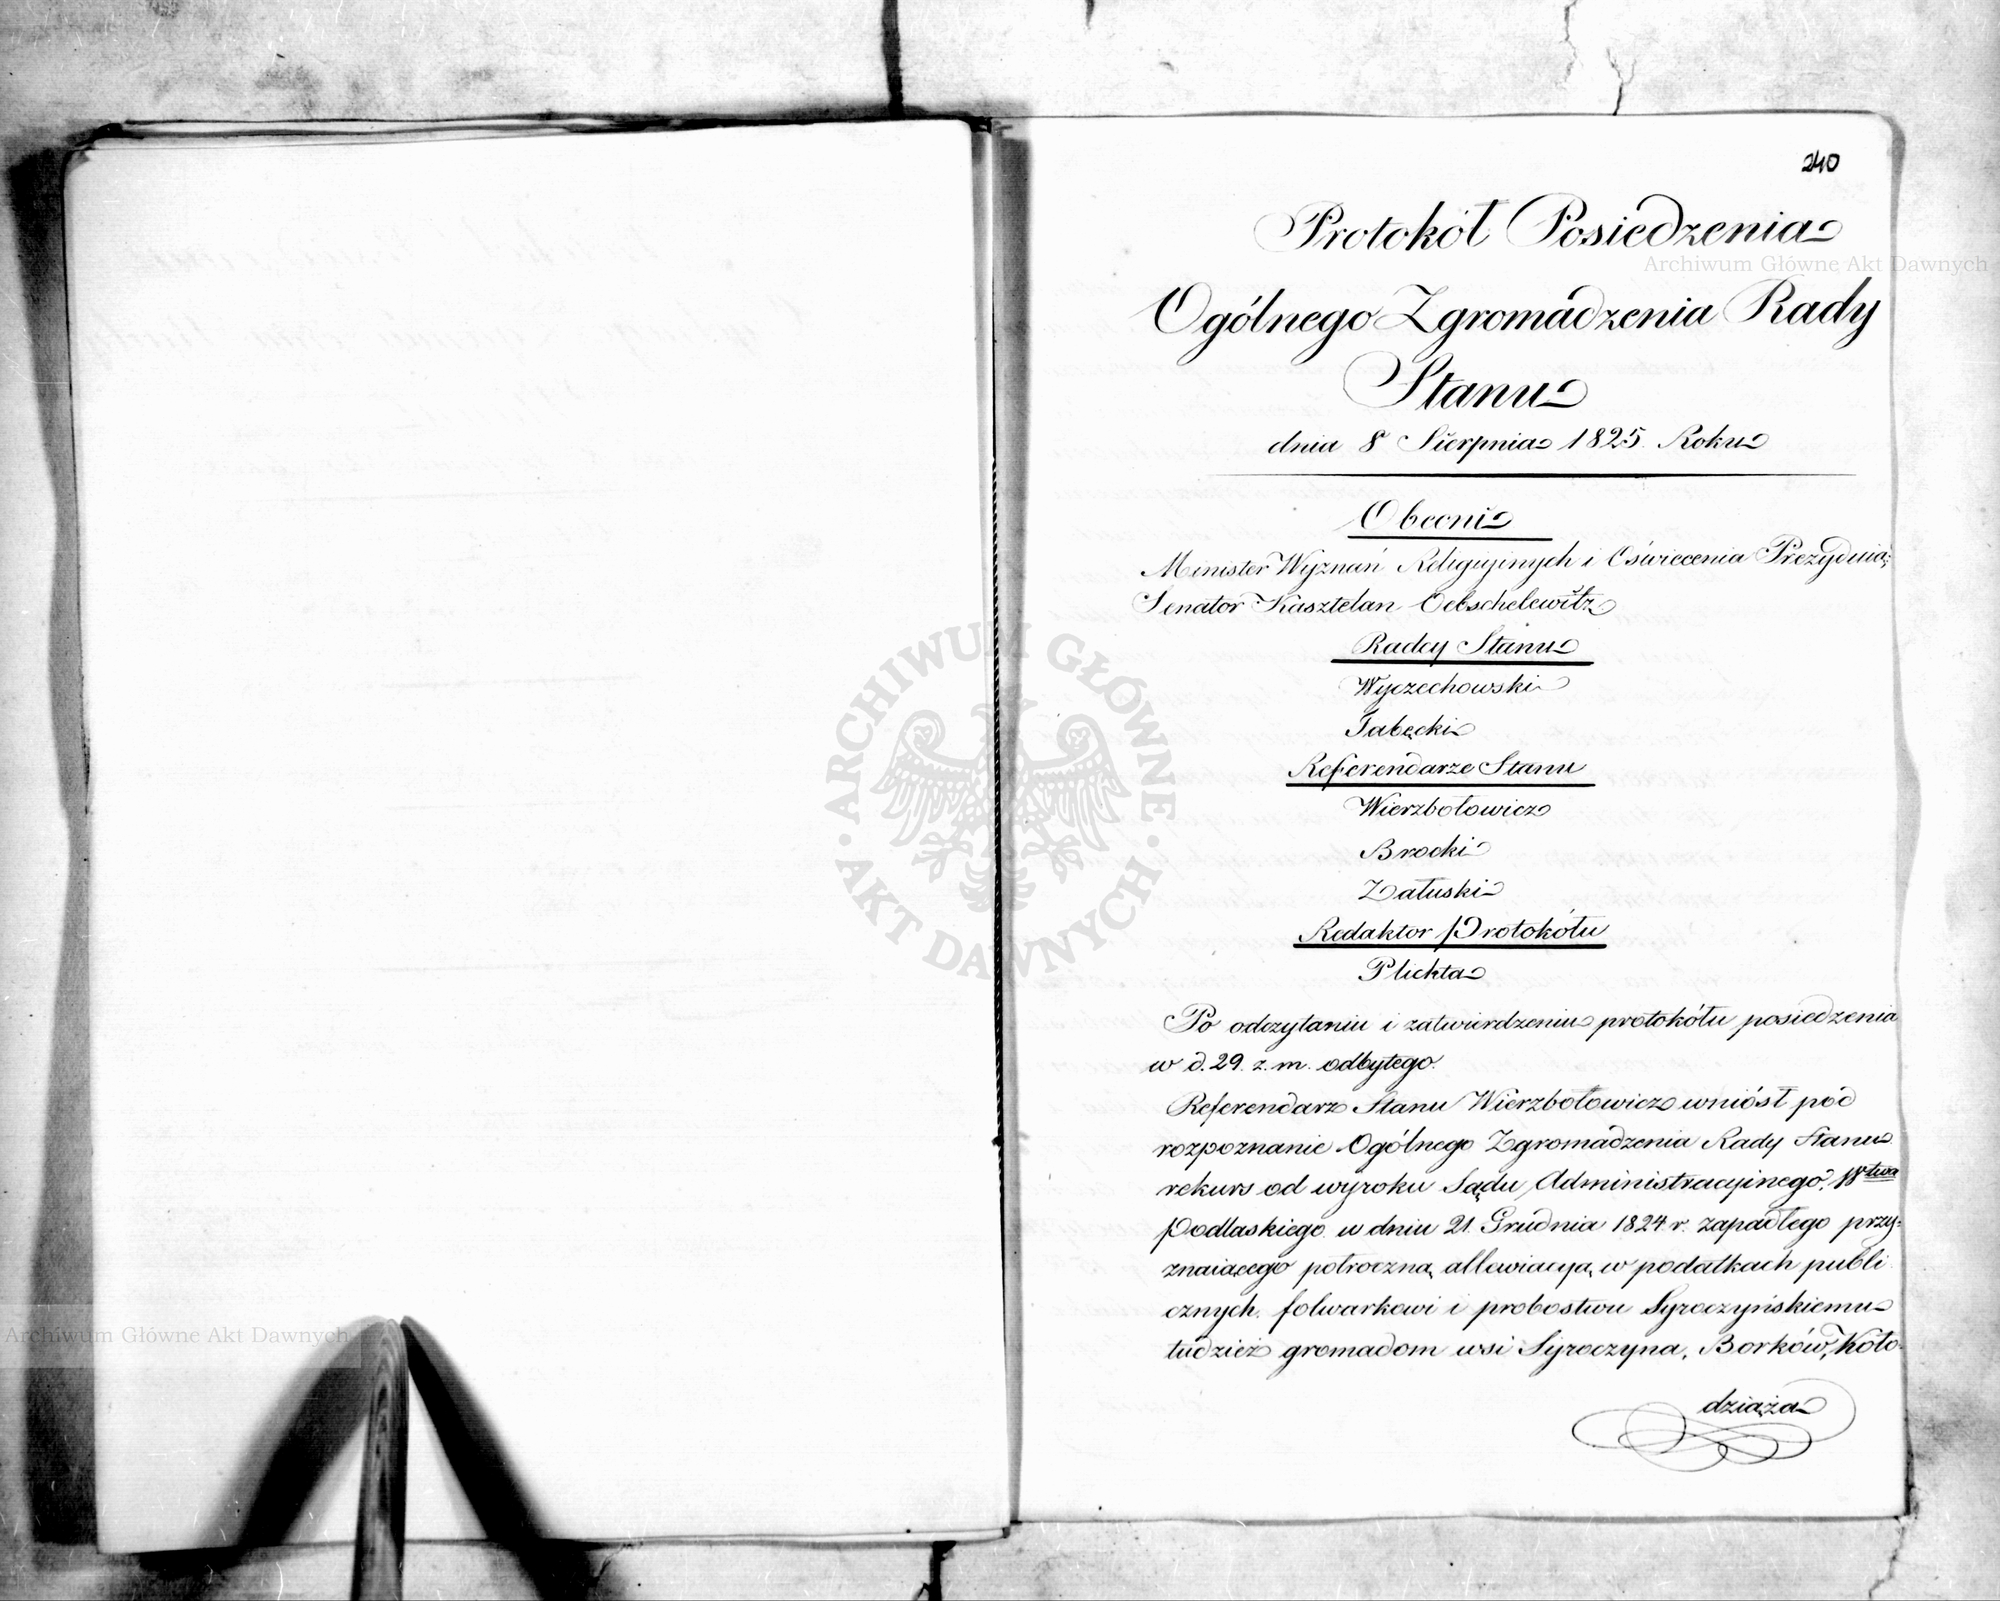 240
Protokół Posiedzenia
Archiwum Główne Akt Dawnych
Ogólnego Zgromadzenia Rady
Stanu
dnia 8 Sierpnia 1825. Roku
Obecni
Minister Wyznań Religijnych i Oświecenia
Senator Kasztelan
Radcy Stanu
Wyczechowski
Tabęcki
Referendarze Stanu
Wierzbołowicz
Brocki
Załuski
Redaktor Protokółu
Plichta
Po odczytaniu i zatwierdzeniu protokółu posiedzenia
w d. 29. z. m. odbytego.
Referendarz Stanu Wierzbołowicz wniósł pod
rozpoznanie Ogólnego Zgromadzenia Rady Stanu
rekurs od wyroku Sądu Administracyjnego. Wtwa
Podlaskiego w dniu 21. Grudnia 1824 r. zapadłego przy=
znaiącego półroczną allewiacyą w podatkach publi
cznych. folwarkowi i probostwu Syroczyńskiemu
tudzież gromadom wsi Syroczyna, Borków, Koło-
dziąża
ARCHIWUM GŁÓWNE · AKT DAWNYCH ·
Archiwum Główne Akt Dawnych